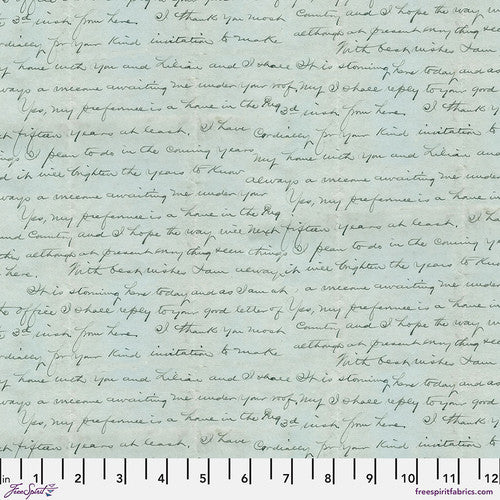 3rd inst from here. I thank you most County, and I hope the way w
Cordially for your kind invitation to make although at present everything see
With best wishes I am
my home with you and Lilian and I shall It is storming here today and as
always a welcome awaiting me under your roof, My I shall reply to your good
Yes, my preference is a house in the 3rd inst from here. I thank y
t fifteen years at least. I have Cordially for your kind invitation to
things I plan to do in the coming years my home with you and Lilian and
d it will brighten the years to know always a welcome awaiting me under
always a welcome awaiting me under your Yes, my preference is a house in
Yes, my preference is a house in the t fifteen years at least. I
and County, and I hope the way will next things I plan to do in the coming y
the although at present everything seem it will brighten the years to know
here. With best wishes I am always a welcome awaiting me under your
It is storming here today and as I am at Yes, my preference is a house in
the office I shall reply to your good letter of County, and I hope the way w
3rd inst from here. I thank you most although at present everything see
Cordially for your kind invitation to make With best wishes I am
my home with you and Lilian and I shall It is storming here today and as
always a welcome awaiting me under your roof, My I shall reply to your good
Yes, my preference is a house in the 3rd inst from here. I thank y
t fifteen years at least. I have Cordially for your kind invitation to
in 1 2 3 4 5 6 7 8 9 10 11 12
FreeSpirit freespiritfabrics.com